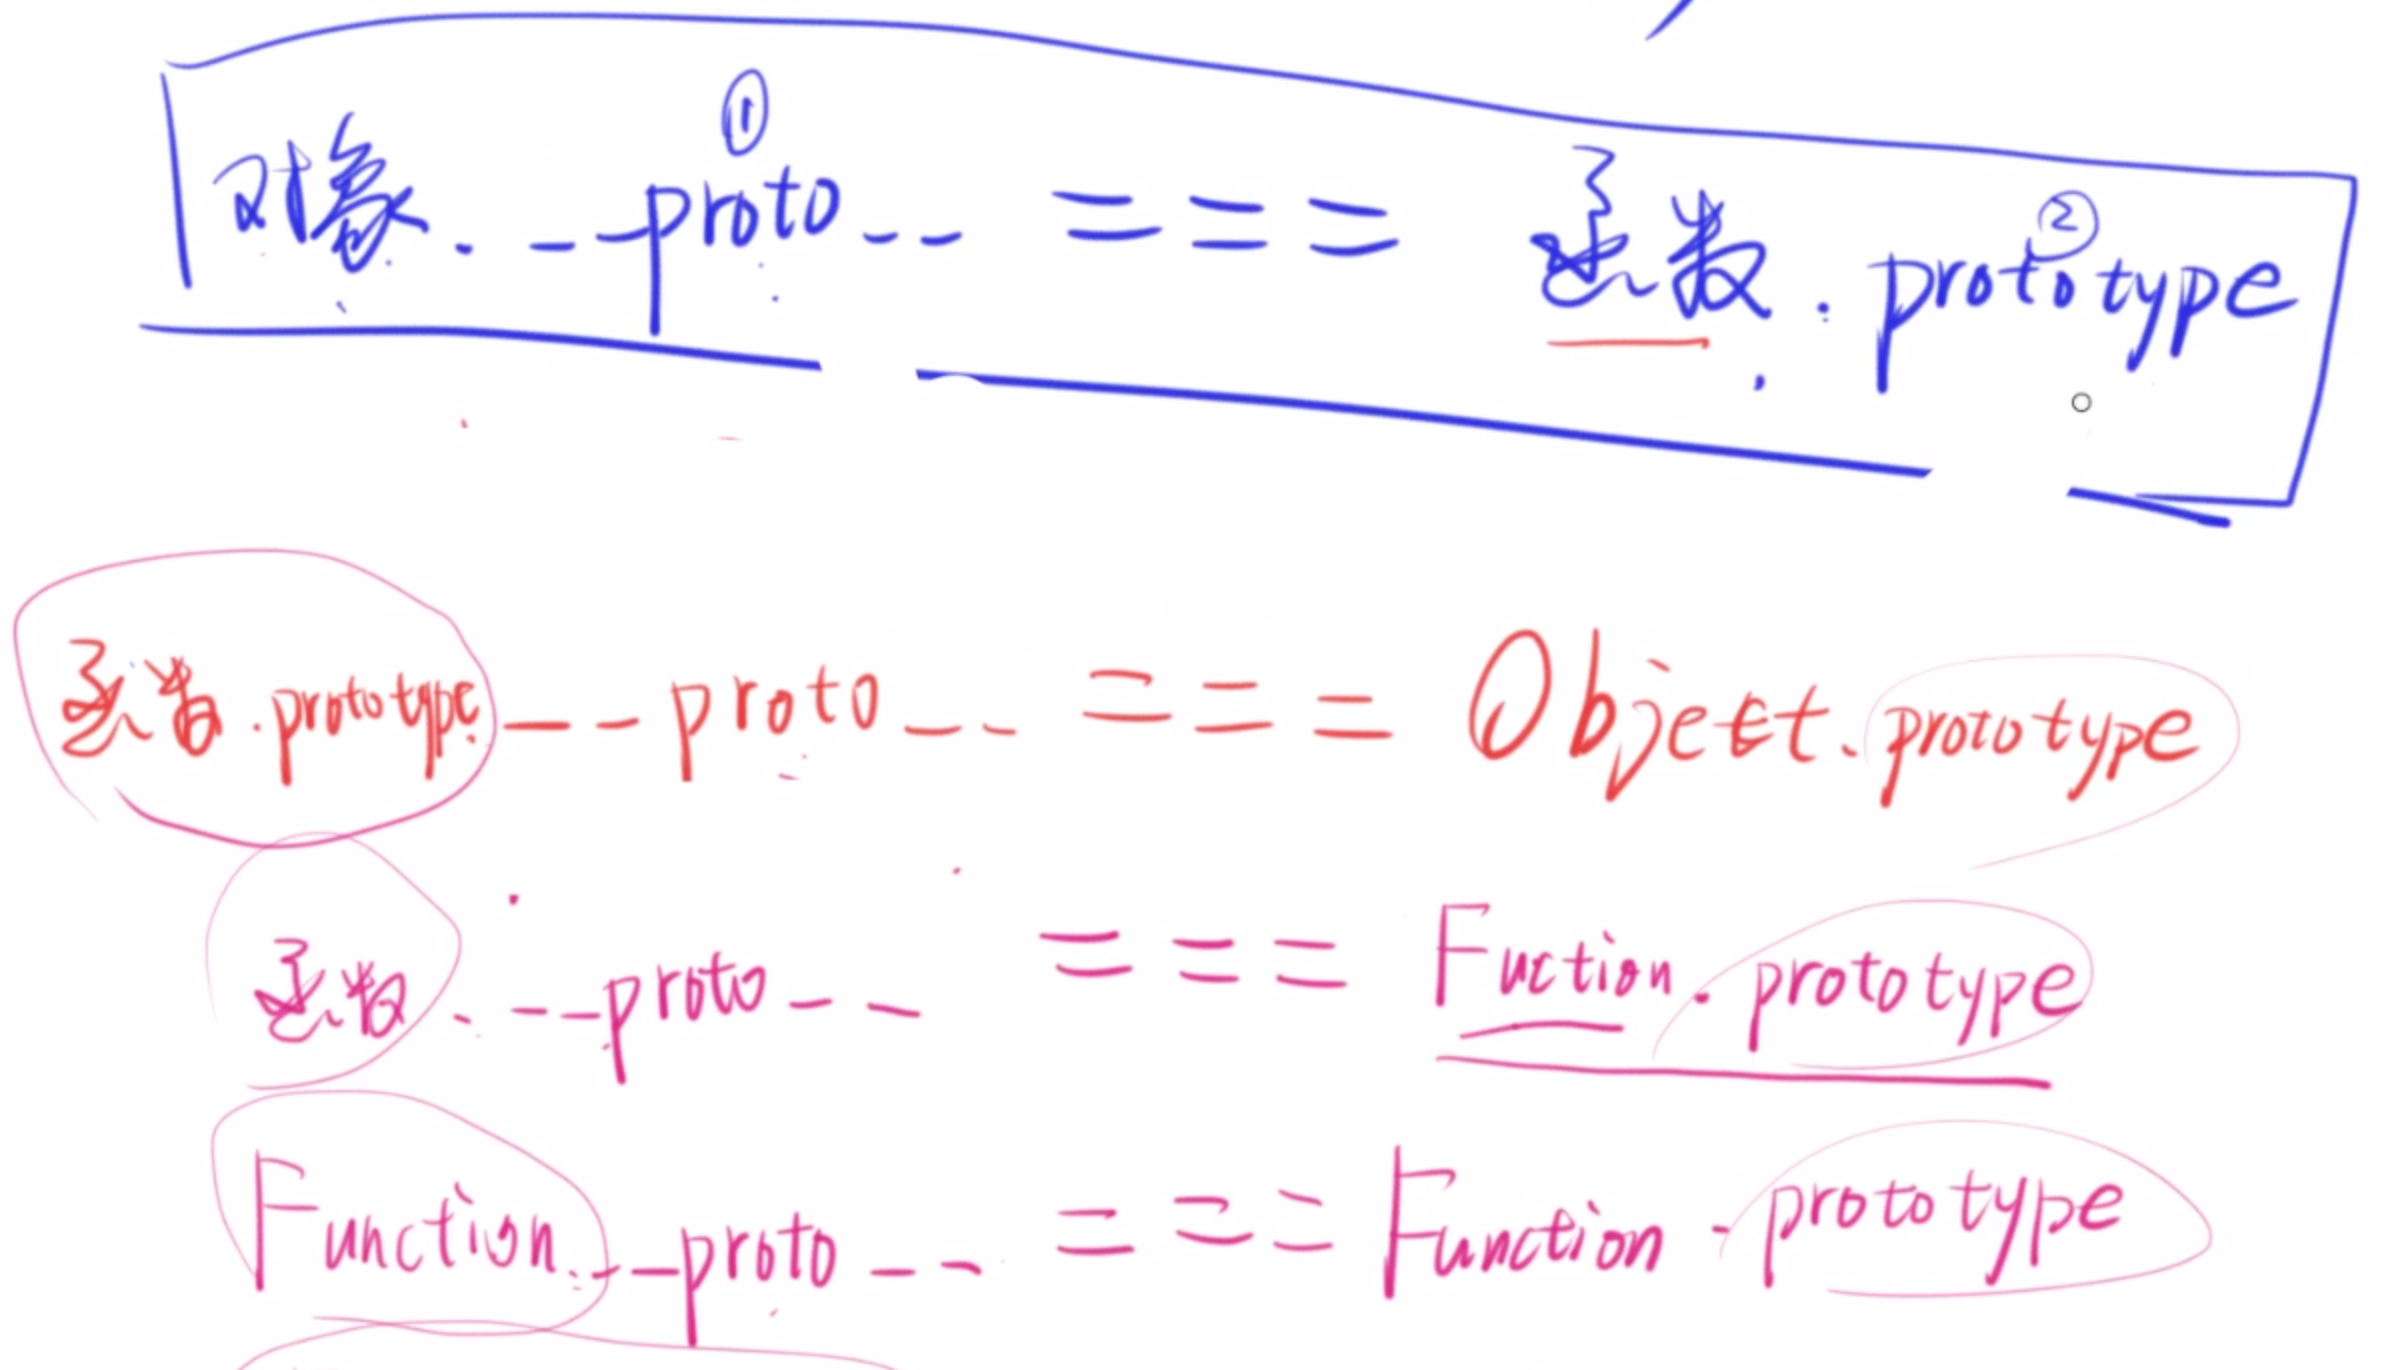 ①
对象.__proto__ === 函数.prototype
②
函数.prototype.__proto__ === Object.prototype
函数.__proto__ === Fuction.prototype
Function.__proto__ === Function.prototype